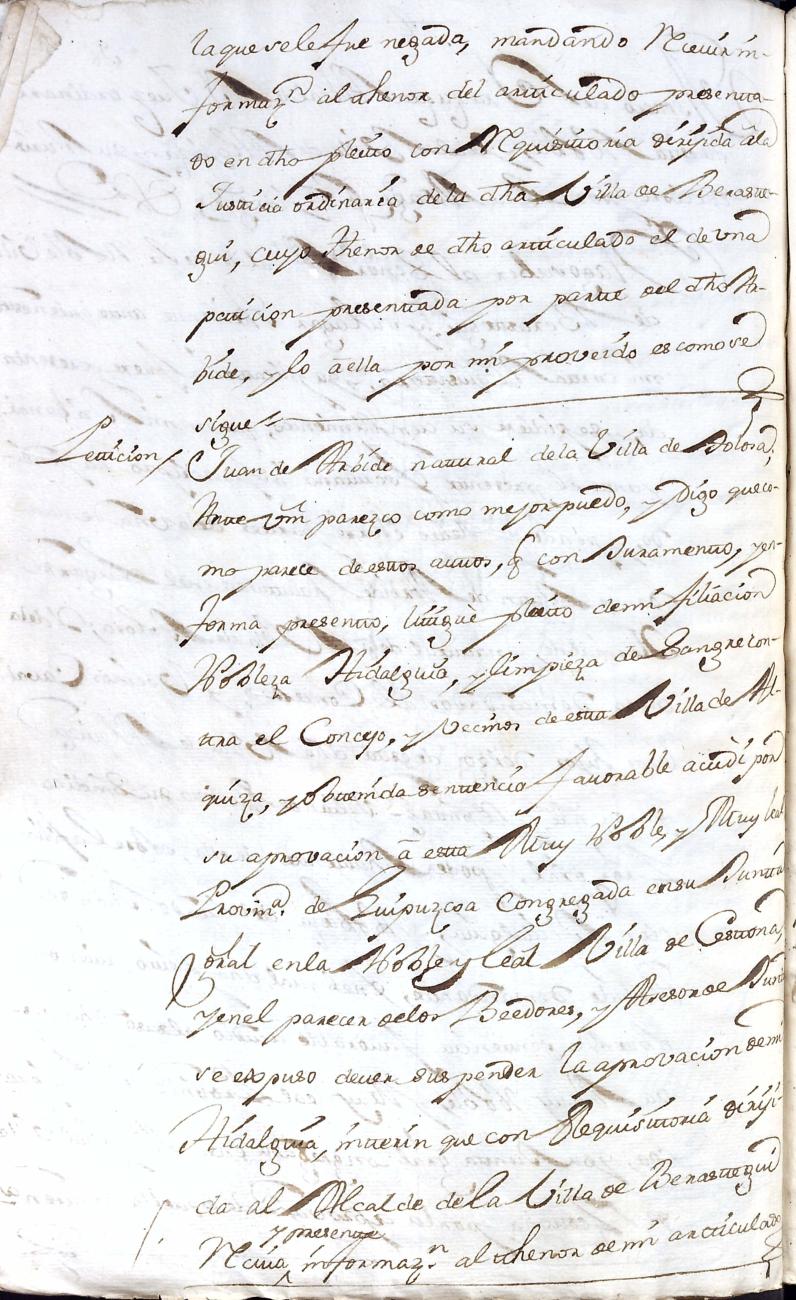 la que se le fue negada, mandando Recivir in-
formaz.n al thenor del articulado presenta-
do en dho pleito con Requisitoria dirijida â la
Justicia ordinaria de la dha Villa de Beraste-
gui, cuyo thenor de dho articulado el de una
peticion presentada por parte del dho Ar-
bide, y lo â ella por mi proveido es como se
sigue
Peticion / Juan de Arbide natural de la Villa de Tolosa,
Ante Vm parezco como mejor puedo, y Digo que co-
mo parece de estos autos, q con Juramento, y en
forma presento, litigùe pleito de mi filiacion
Nobleza Hidalguia, y limpieza de Sangre con-
tra el Concejo, y Vecinos de esta Villa de Al-
quiza, y obtenida sentencia favorable acudì por
su aprovacion â esta Muy Noble, y Muy leal
Provin.a de Guipuzcoa Congregada en su Junta
gral en la Noble y leal Villa de Cestona,
y en el parecer de los Beedores, y Asesor de Junta
se expuso dever suspender la aprovacion de mi
Hidalguia, interin que con Requisitoria diriji-
da al Alcalde de la Villa de Berastegui
y presente
Reciva informaz.n al thenor de mi articulado